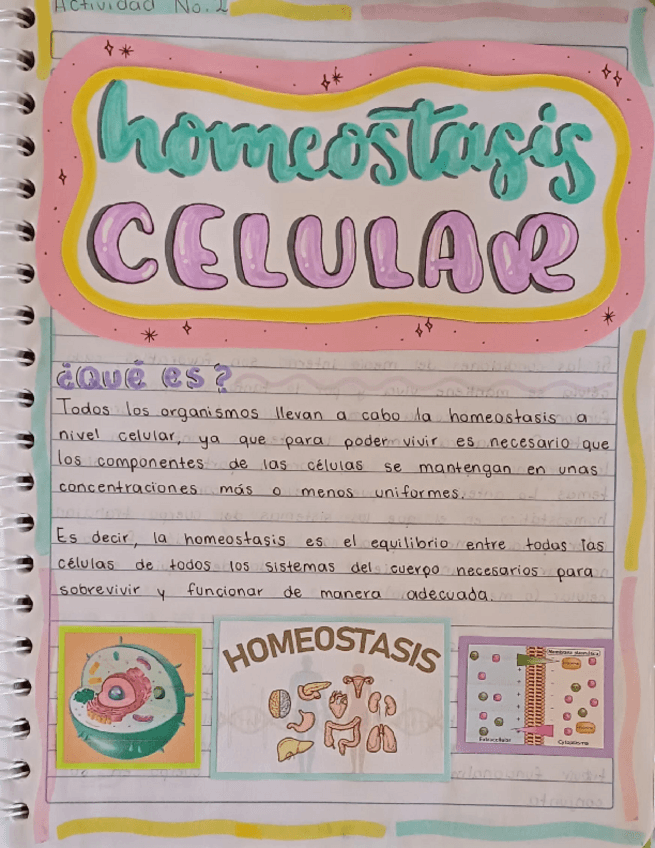 Actividad No. 2
homeostasis
CELULAR
¿Qué es?
Todos los organismos llevan a cabo la homeostasis a
nivel celular, ya que para poder vivir es necesario que
los componentes de las células se mantengan en unas
concentraciones más o menos uniformes.
Es decir, la homeostasis es el equilibrio entre todas las
células de todos los sistemas del cuerpo necesarios para
sobrevivir y funcionar de manera adecuada.
HOMEOSTASIS
Membrana plasmática
Extracelular
Citoplasma